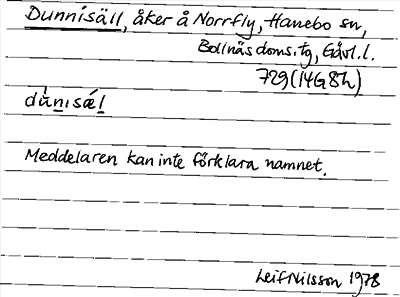 Dunnisäll, åker å Norrfly, Hanebo sn,
Bollnäs doms. tg, Gävl. l.
729 (14G 8h)
dùn̲ısǽl̲
Meddelaren kan inte förklara namnet.
Leif Nilsson 1978